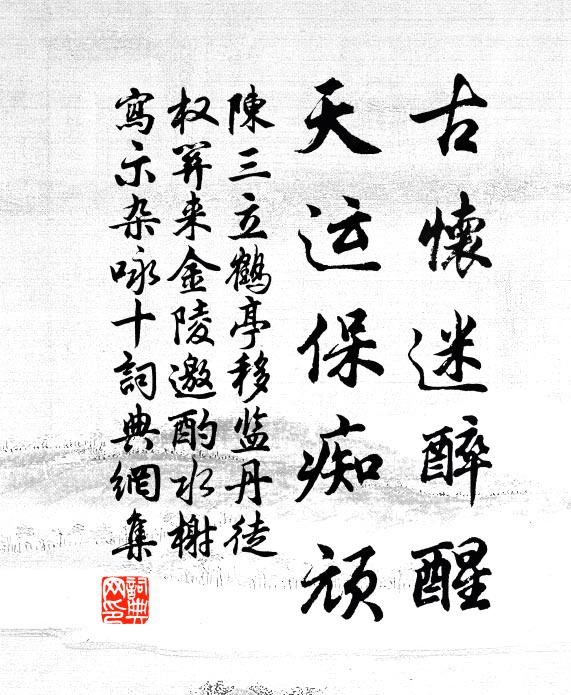 古懷迷醉醒
天运保痴頑
陳三立鶴亭移监丹徒
权筭来金陵邀酌水榭
寫示杂咏十詞典網集
詞典网印